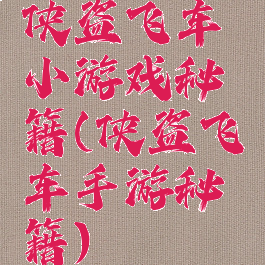 侠盗飞车
小游戏秘
籍(侠盗飞
车手游秘
籍)